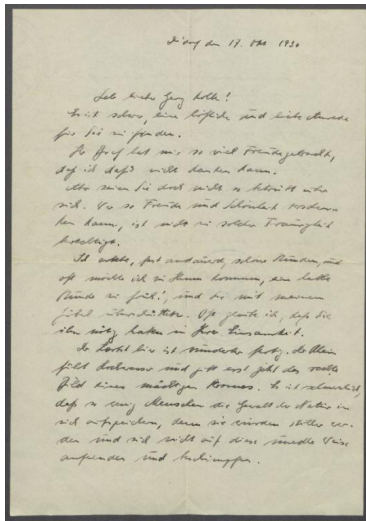 D'dorf den 17. Okt 1930
Sehr lieber Georg Kolbe!
Es ist schwer, eine höfliche und liebe Anrede
für Sie zu finden.
Ihr Brief hat mir so viel Freude gebracht,
daß ich dafür nicht danken kann.
Aber seien Sie doch nicht so betrübt über
sich. Wer so Freude und Schönheit
kann, ist nicht zu solcher Traurigkeit
berechtigt.
Ich erlebe, fast andauernd, schöne Stunden, und
oft möchte ich zu Ihnen kommen, eine
Stunde zu, und Sie mit meinem
Jubel überschütten. Oft glaube ich, daß Sie
ihn nötig haben in Ihrer Einsamkeit.
Die hier ist wunderbar. Der Rhein
führt Hochwasser und gibt erst jetzt das volle
Bild eines mächtigen Stromes. Es ist schmerzlich,
daß so wenig Menschen die Gewalt der Natur in
sich aufspeichern, denn sie würden stiller wer-
den und sich nicht auf diese unedle Weise
und.